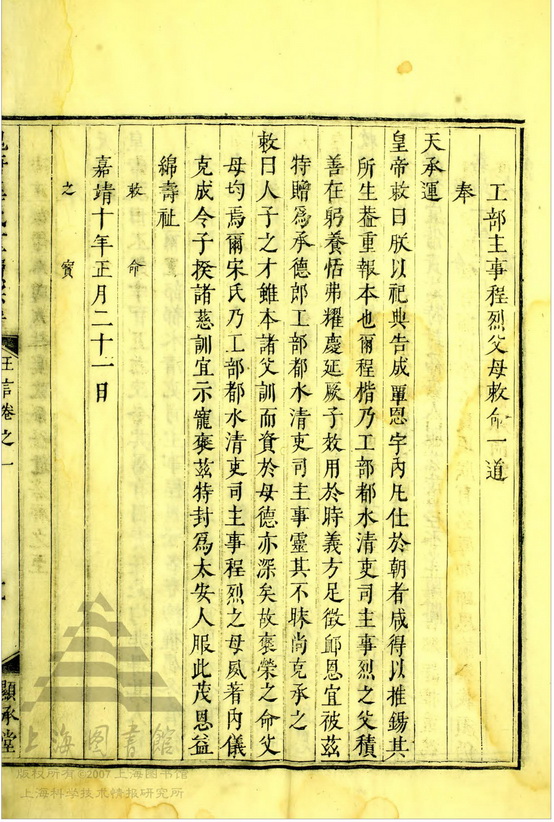 工部主事程烈父母敕命一道
奉
天承運
皇帝敕曰朕以祀典告成覃恩宇內凡仕於朝者咸得以推錫其
所生葢重報本也爾程楷乃工部都水清吏司主事烈之父積
善在躬養恬弗耀慶延厥子效用於時義方足徵䘏恩宜被茲
特贈為承德郎工部都水清吏司主事靈其不昧尚克承之
敕曰人子之才雖本諸父訓而資於母德亦深矣故褒榮之命父
母均焉爾宋氏乃工部都水清吏司主事程烈之母夙著內儀
克成令子揆諸慈訓宜示寵褒茲特封為太安人服此茂恩益
綿壽祉
敕命
嘉靖十年正月二十一日
之寶
王言卷之一
顯承堂
上海圖書館
版权所有©2007上海图书馆
上海科学技术情报研究所